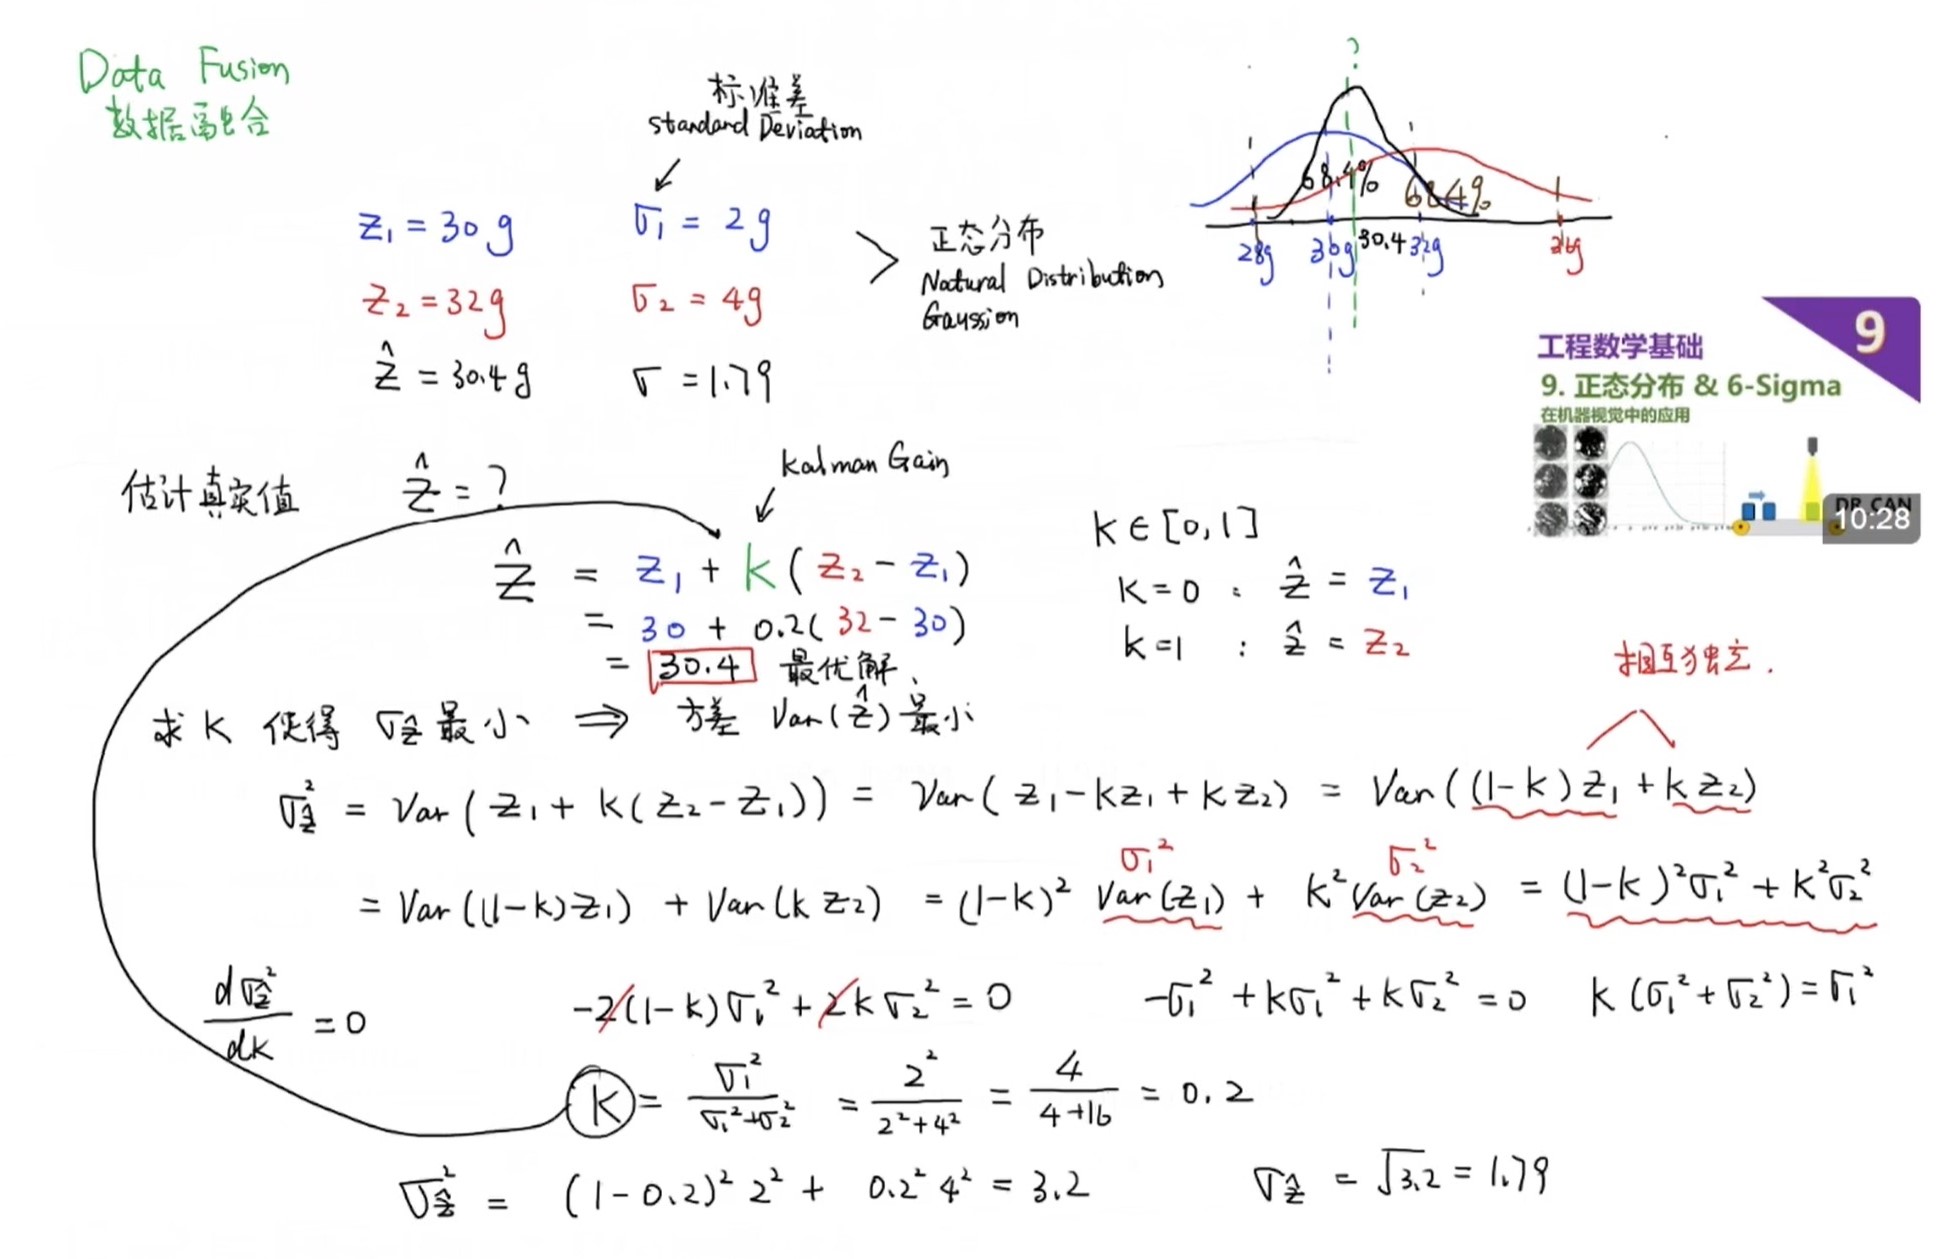 Data Fusion
数据融合
标准差
standard Deviation
z₁ = 30g σ₁ = 2g
z₂ = 32g σ₂ = 4g
ẑ = 30.4g σ = 1.79
正态分布
Natural Distribution
Gaussion
?
68.4% 68.4%
28g 30g 30.4 32g 36g
9
工程数学基础
9. 正态分布 & 6-Sigma
在机器视觉中的应用
DR_CAN
10:28
估计真实值 ẑ = ?
Kalman Gain
ẑ = z₁ + k(z₂ - z₁)
= 30 + 0.2(32 - 30)
= 30.4 最优解
k ∈ [0,1]
k = 0 : ẑ = z₁
k = 1 : ẑ = z₂
相互独立.
求 k 使得 σẑ 最小 ⇒ 方差 Var(ẑ) 最小
σẑ² = Var(z₁ + k(z₂ - z₁)) = Var(z₁ - kz₁ + kz₂) = Var((1-k)z₁ + kz₂)
σ₁² σ₂²
= Var((1-k)z₁) + Var(kz₂) = (1-k)² Var(z₁) + k² Var(z₂) = (1-k)²σ₁² + k²σ₂²
dσẑ²/dk = 0 -2(1-k)σ₁² + 2kσ₂² = 0 -σ₁² + kσ₁² + kσ₂² = 0 k(σ₁² + σ₂²) = σ₁²
k = σ₁²/(σ₁²+σ₂²) = 2²/(2²+4²) = 4/(4+16) = 0.2
σẑ² = (1-0.2)² 2² + 0.2² 4² = 3.2 σẑ = √3.2 = 1.79